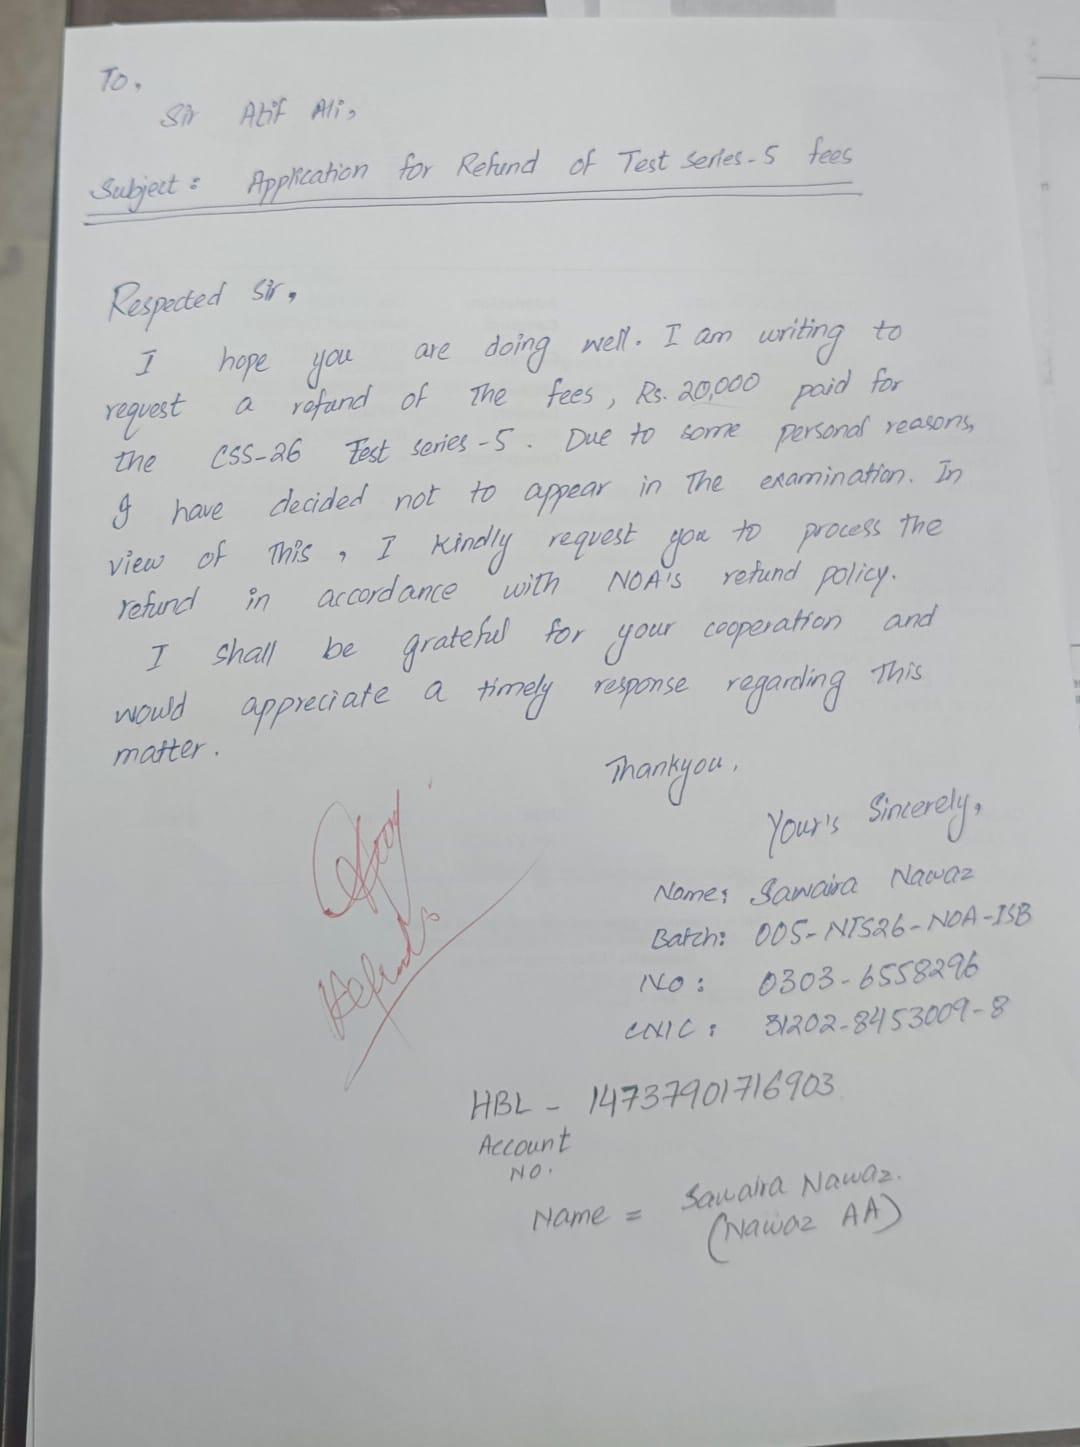 To,
Sir Atif Ali,
Subject: Application for Refund of Test Series-5 fees
Respected Sir,
I hope you are doing well. I am writing to
request a refund of the fees, Rs. 20,000 paid for
the CSS-26 Test series-5. Due to some personal reasons,
I have decided not to appear in the examination. In
view of this, I kindly request you to process the
refund in accordance with NOA's refund policy.
I shall be grateful for your cooperation and
would appreciate a timely response regarding this
matter.
Thankyou,
Your's Sincerely,
Name: Sawaira Nawaz
Batch: 005-NTS26-NOA-ISB
NO: 0303-6558296
CNIC: 31202-8453009-8
HBL - 14737901716903
Account
NO.
Name = Sawaira Nawaz.
(Nawaz AA)